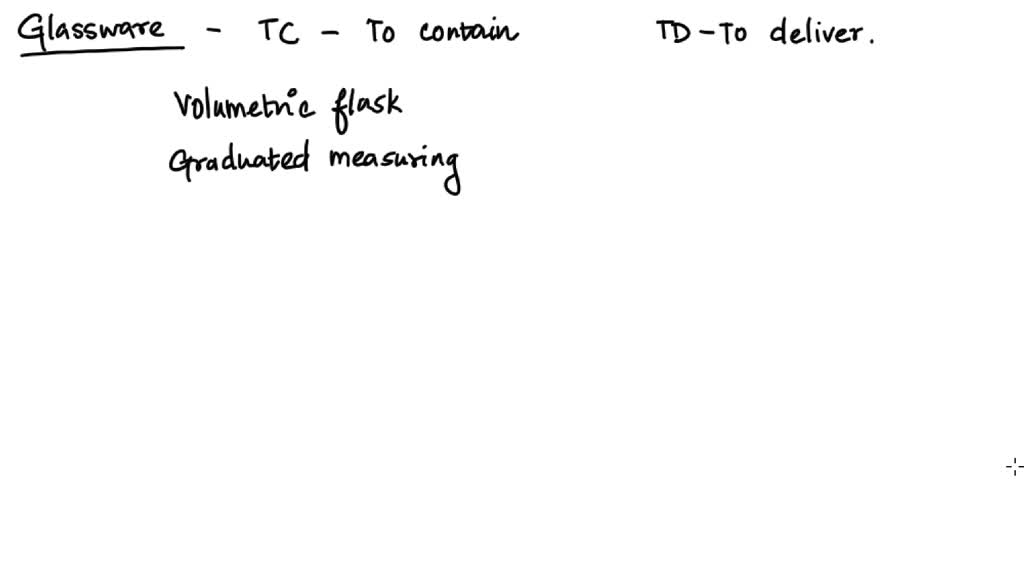 Glassware - TC - To contain TD - To deliver.
Volumetric flask
Graduated measuring